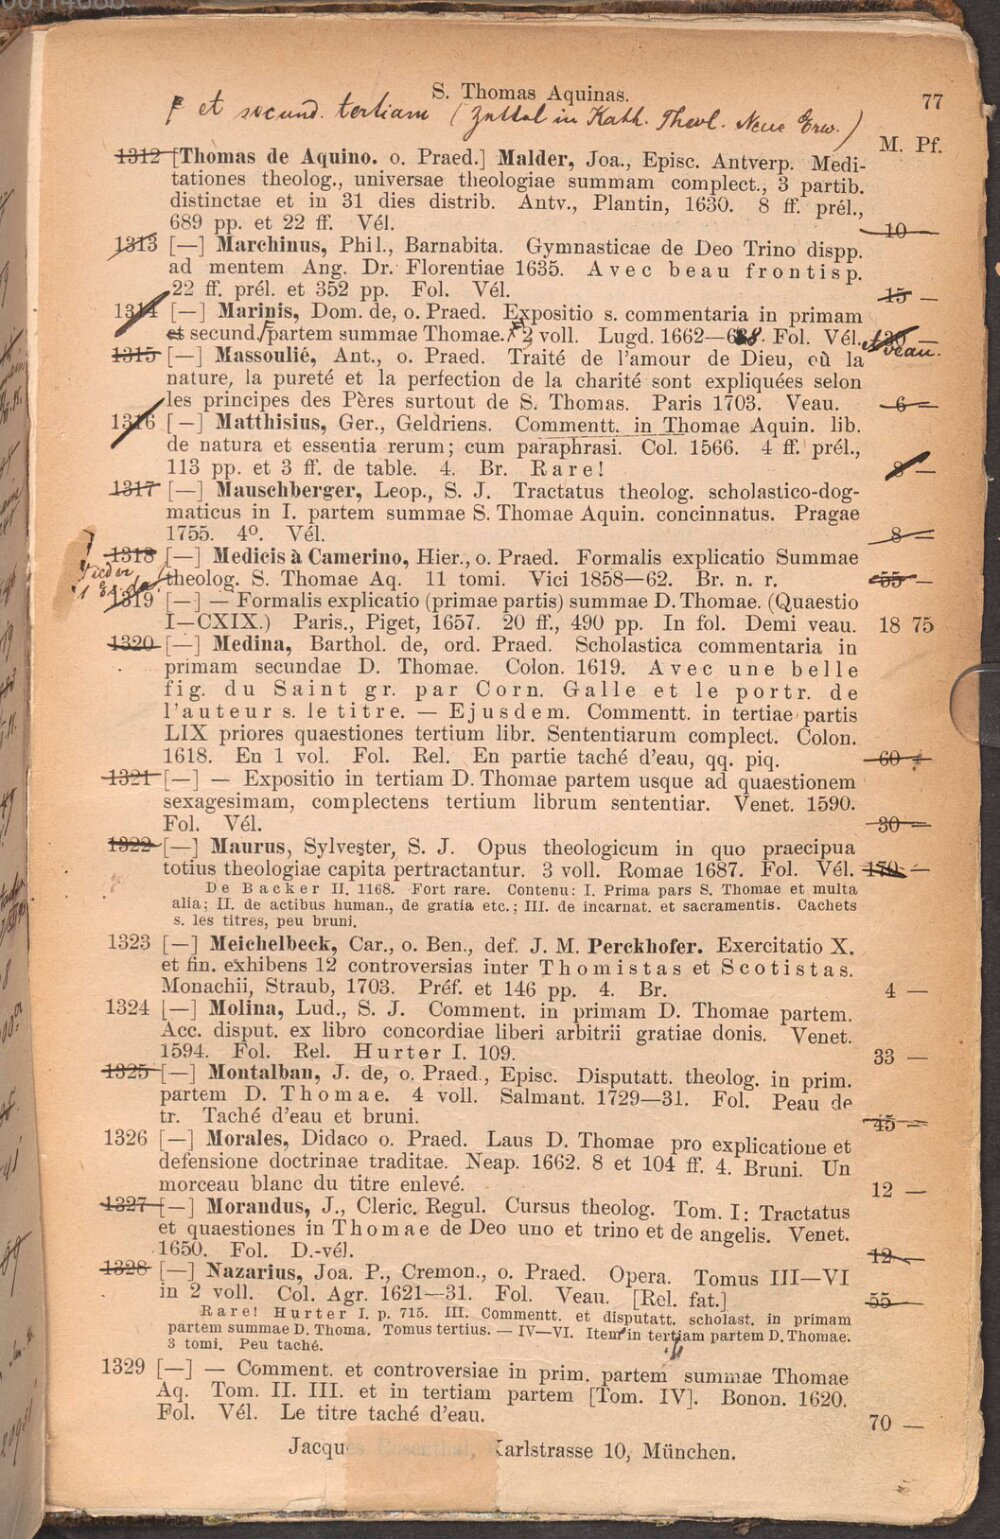 S. Thomas Aquinas.
77
et secund. tertiam (Zettel in Kath. Theol. Neue Erw.)
M. Pf.
1312 [Thomas de Aquino. o. Praed.] Malder, Joa., Episc. Antverp. Medi-
tationes theolog., universae theologiae summam complect., 3 partib.
distinctae et in 31 dies distrib. Antv., Plantin, 1630. 8 ff. prél.,
689 pp. et 22 ff. Vél. 10 —
1313 [—] Marchinus, Phil., Barnabita. Gymnasticae de Deo Trino dispp.
ad mentem Ang. Dr. Florentiae 1635. Avec beau frontisp.
22 ff. prél. et 352 pp. Fol. Vél. 15 —
1314 [—] Marinis, Dom. de, o. Praed. Expositio s. commentaria in primam
et secund. partem summae Thomae. 2 voll. Lugd. 1662—68. Fol. Vél. 30 —
et veau.
1315 [—] Massoulié, Ant., o. Praed. Traité de l'amour de Dieu, où la
nature, la pureté et la perfection de la charité sont expliquées selon
les principes des Pères surtout de S. Thomas. Paris 1703. Veau. 6 —
1316 [—] Matthisius, Ger., Geldriens. Commentt. in Thomae Aquin. lib.
de natura et essentia rerum; cum paraphrasi. Col. 1566. 4 ff. prél.,
113 pp. et 3 ff. de table. 4. Br. Rare! 8 —
1317 [—] Mauschberger, Leop., S. J. Tractatus theolog. scholastico-dog-
maticus in I. partem summae S. Thomae Aquin. concinnatus. Pragae
1755. 4º. Vél. 8 —
1318 [—] Medicis à Camerino, Hier., o. Praed. Formalis explicatio Summae
theolog. S. Thomae Aq. 11 tomi. Vici 1858—62. Br. n. r. 55 —
1319 [—] — Formalis explicatio (primae partis) summae D. Thomae. (Quaestio
I—CXIX.) Paris., Piget, 1657. 20 ff., 490 pp. In fol. Demi veau. 18 75
1320 [—] Medina, Barthol. de, ord. Praed. Scholastica commentaria in
primam secundae D. Thomae. Colon. 1619. Avec une belle
fig. du Saint gr. par Corn. Galle et le portr. de
l'auteur s. le titre. — Ejusdem. Commentt. in tertiae partis
LIX priores quaestiones tertium libr. Sententiarum complect. Colon.
1618. En 1 vol. Fol. Rel. En partie taché d'eau, qq. piq. 60 —
1321 [—] — Expositio in tertiam D. Thomae partem usque ad quaestionem
sexagesimam, complectens tertium librum sententiar. Venet. 1590.
Fol. Vél. 30 —
1322 [—] Maurus, Sylvester, S. J. Opus theologicum in quo praecipua
totius theologiae capita pertractantur. 3 voll. Romae 1687. Fol. Vél. 170 —
De Backer II. 1168. Fort rare. Contenu: I. Prima pars S. Thomae et multa
alia; II. de actibus human., de gratia etc.; III. de incarnat. et sacramentis. Cachets
s. les titres, peu bruni.
1323 [—] Meichelbeck, Car., o. Ben., def. J. M. Perckhofer. Exercitatio X.
et fin. exhibens 12 controversias inter Thomistas et Scotistas.
Monachii, Straub, 1703. Préf. et 146 pp. 4. Br. 4 —
1324 [—] Molina, Lud., S. J. Comment. in primam D. Thomae partem.
Acc. disput. ex libro concordiae liberi arbitrii gratiae donis. Venet.
1594. Fol. Rel. Hurter I. 109. 33 —
1325 [—] Montalban, J. de, o. Praed., Episc. Disputatt. theolog. in prim.
partem D. Thomae. 4 voll. Salmant. 1729—31. Fol. Peau de
tr. Taché d'eau et bruni. 45 —
1326 [—] Morales, Didaco o. Praed. Laus D. Thomae pro explicatione et
defensione doctrinae traditae. Neap. 1662. 8 et 104 ff. 4. Bruni. Un
morceau blanc du titre enlevé. 12 —
1327 [—] Morandus, J., Cleric. Regul. Cursus theolog. Tom. I: Tractatus
et quaestiones in Thomae de Deo uno et trino et de angelis. Venet.
1650. Fol. D.-vél. 12 —
1328 [—] Nazarius, Joa. P., Cremon., o. Praed. Opera. Tomus III—VI
in 2 voll. Col. Agr. 1621—31. Fol. Veau. [Rel. fat.] 55 —
Rare! Hurter I. p. 715. III. Commentt. et disputatt. scholast. in primam
partem summae D. Thoma. Tomus tertius. — IV—VI. Item in tertiam partem D. Thomae.
3 tomi. Peu taché.
1329 [—] — Comment. et controversiae in prim. partem summae Thomae
Aq. Tom. II. III. et in tertiam partem [Tom. IV]. Bonon. 1620.
Fol. Vél. Le titre taché d'eau. 70 —
Jacques Rosenthal, Karlstrasse 10, München.